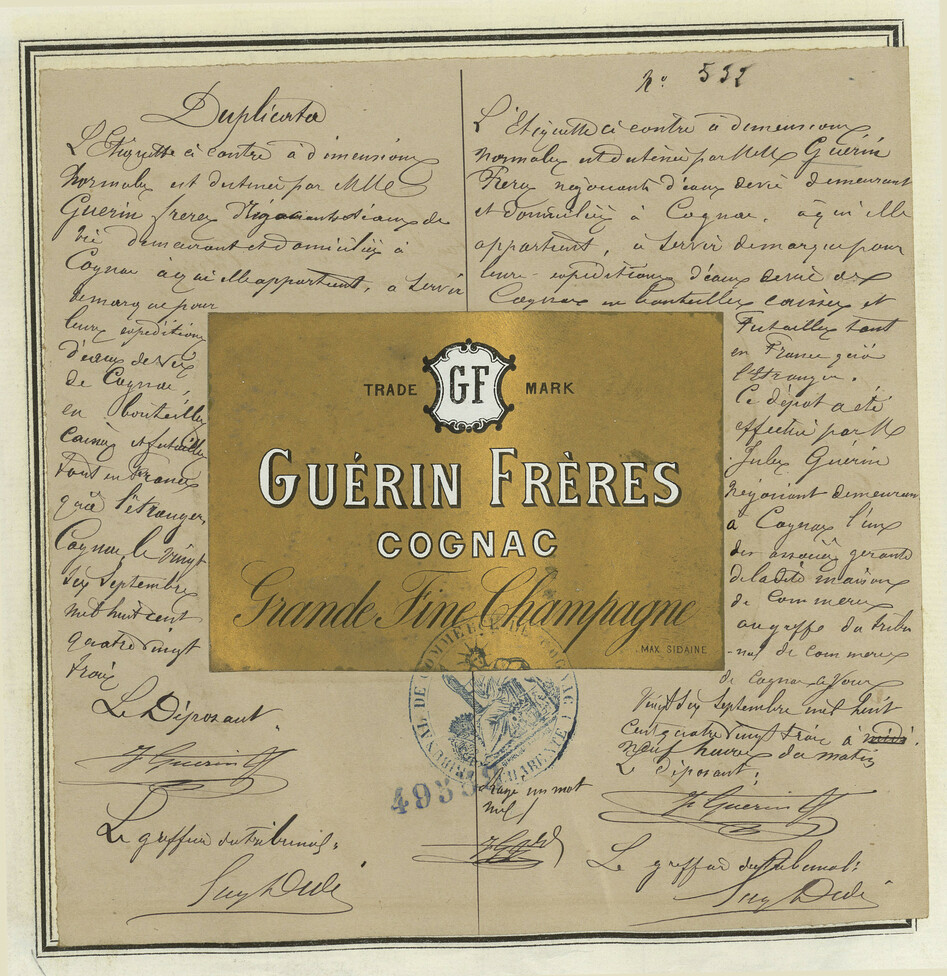 Duplicata
L'Etiquette ci contre à dimensions
normales est destinée par MM
Guérin freres Négociants d'eaux de
vie demeurant et domiciliés à
Cognac à qui elle appartient, à servir
de marque pour
leurs expeditions
d'eaux de vie
de Cognac,
en bouteilles
caisses et futailles
tant en France
qu'à l'étranger,
Cognac le vingt
six Septembre
mil huit cent
quatre vingt
trois
Le Déposant.
J Guerin
Le greffier du tribunal,
N° 532
L'Etiquette ci contre à dimensions
normales est destinée par MM Guérin
Freres négociants d'eaux de vie demeurant
et domiciliés à Cognac, à qui elle
appartient, à servir de marque pour
leurs expeditions d'eaux de vie de
Cognac en bouteilles caisses et
Futailles tant
en France qu'à
l'Etranger.
Ce dépot a été
effectué par M
Jules Guérin
Négociant demeurant
à Cognac l'un
des associés gerants
de la dite maison
de Commerce
au greffe du tribu
-nal de commerce
de Cognac ce jour
Vingt six Septembre mil huit
Cent quatre vingt trois à midi.
neuf heures du matin
Le déposant,
J Guerin
Le greffier du tribunal,
Rayé un mot
nul
TRADE GF MARK
GUÉRIN FRÈRES
COGNAC
Grande Fine Champagne
MAX SIDAINE
TRIBUNAL DE COMMERCE DE COGNAC
(CHARENTE)